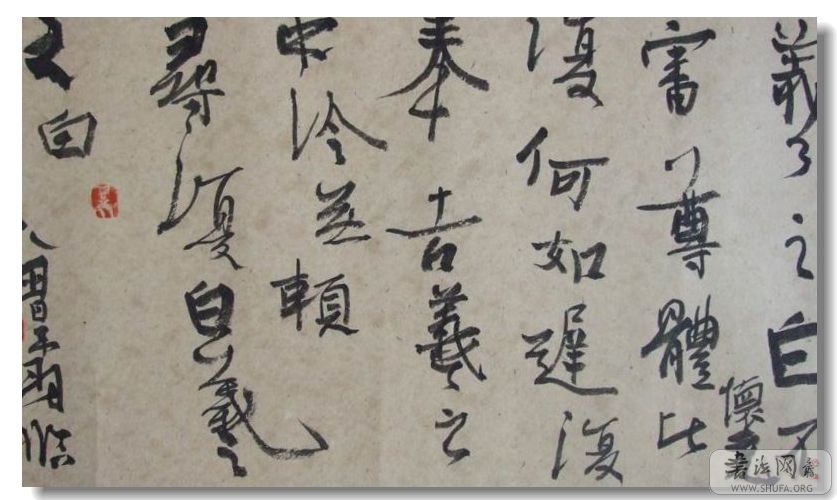 羲之白不
審尊體比
復何如遲復
奉告羲之
中冷無賴
尋復白羲
之白
臨
書法网
WWW.SHUFA.ORG